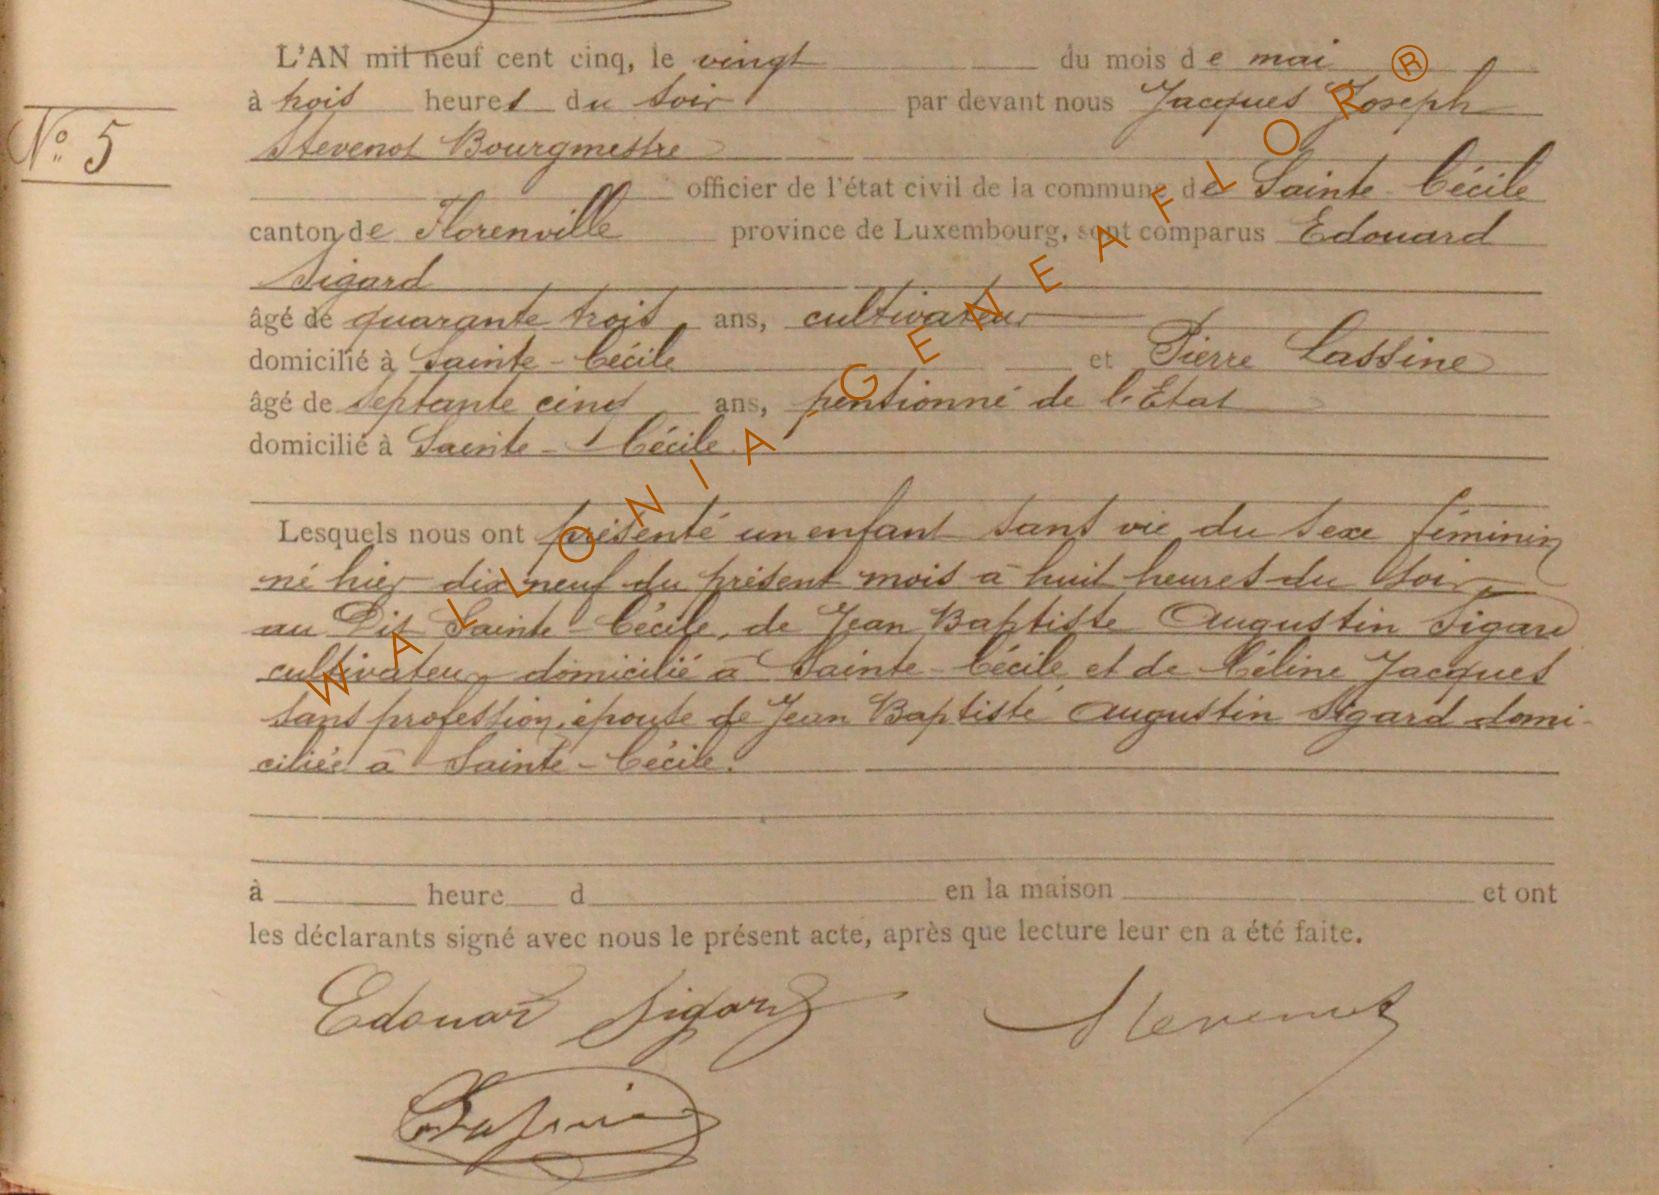 L'AN mil neuf cent cinq, le vingt du mois de mai
à trois heures du soir par devant nous Jacques Joseph
N° 5
Stevenot Bourgmestre
officier de l'état civil de la commune de Sainte Cécile
canton de Florenville province de Luxembourg, sont comparus Edouard
Sigard
âgé de quarante trois ans, cultivateur
domicilié à Sainte-Cécile et Pierre Lassine
âgé de septante cinq ans, pensionné de l'Etat
domicilié à Sainte-Cécile.
Lesquels nous ont présenté un enfant sans vie du sexe féminin
né hier dix neuf du présent mois à huit heures du soir,
au Dit Sainte-Cécile, de Jean Baptiste Augustin Sigard
cultivateur domicilié à Sainte-Cécile et de Céline Jacques
sans profession, épouse de Jean Baptiste Augustin Sigard domi-
ciliée à Sainte-Cécile.
à heure d en la maison et ont
les déclarants signé avec nous le présent acte, après que lecture leur en a été faite.
Edouard Sigard Stevenot
Lassine
WALLONIA-GENEAFLOR®